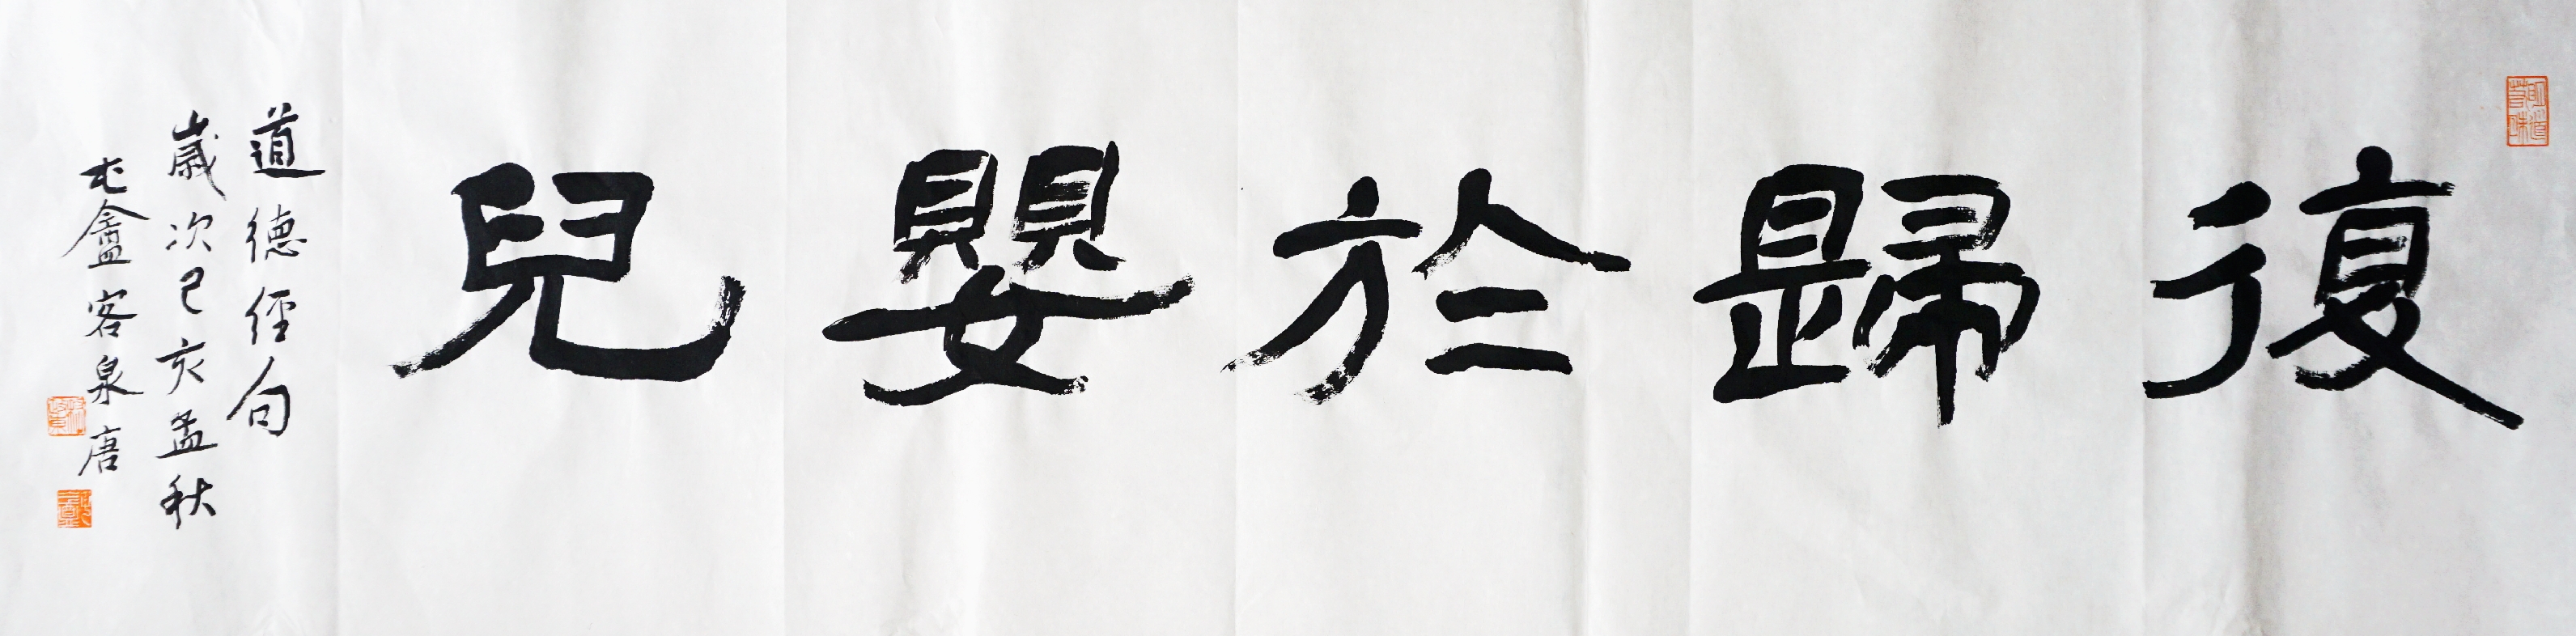 復歸於嬰兒
道德經句
歲次己亥孟秋
盦客泉唐